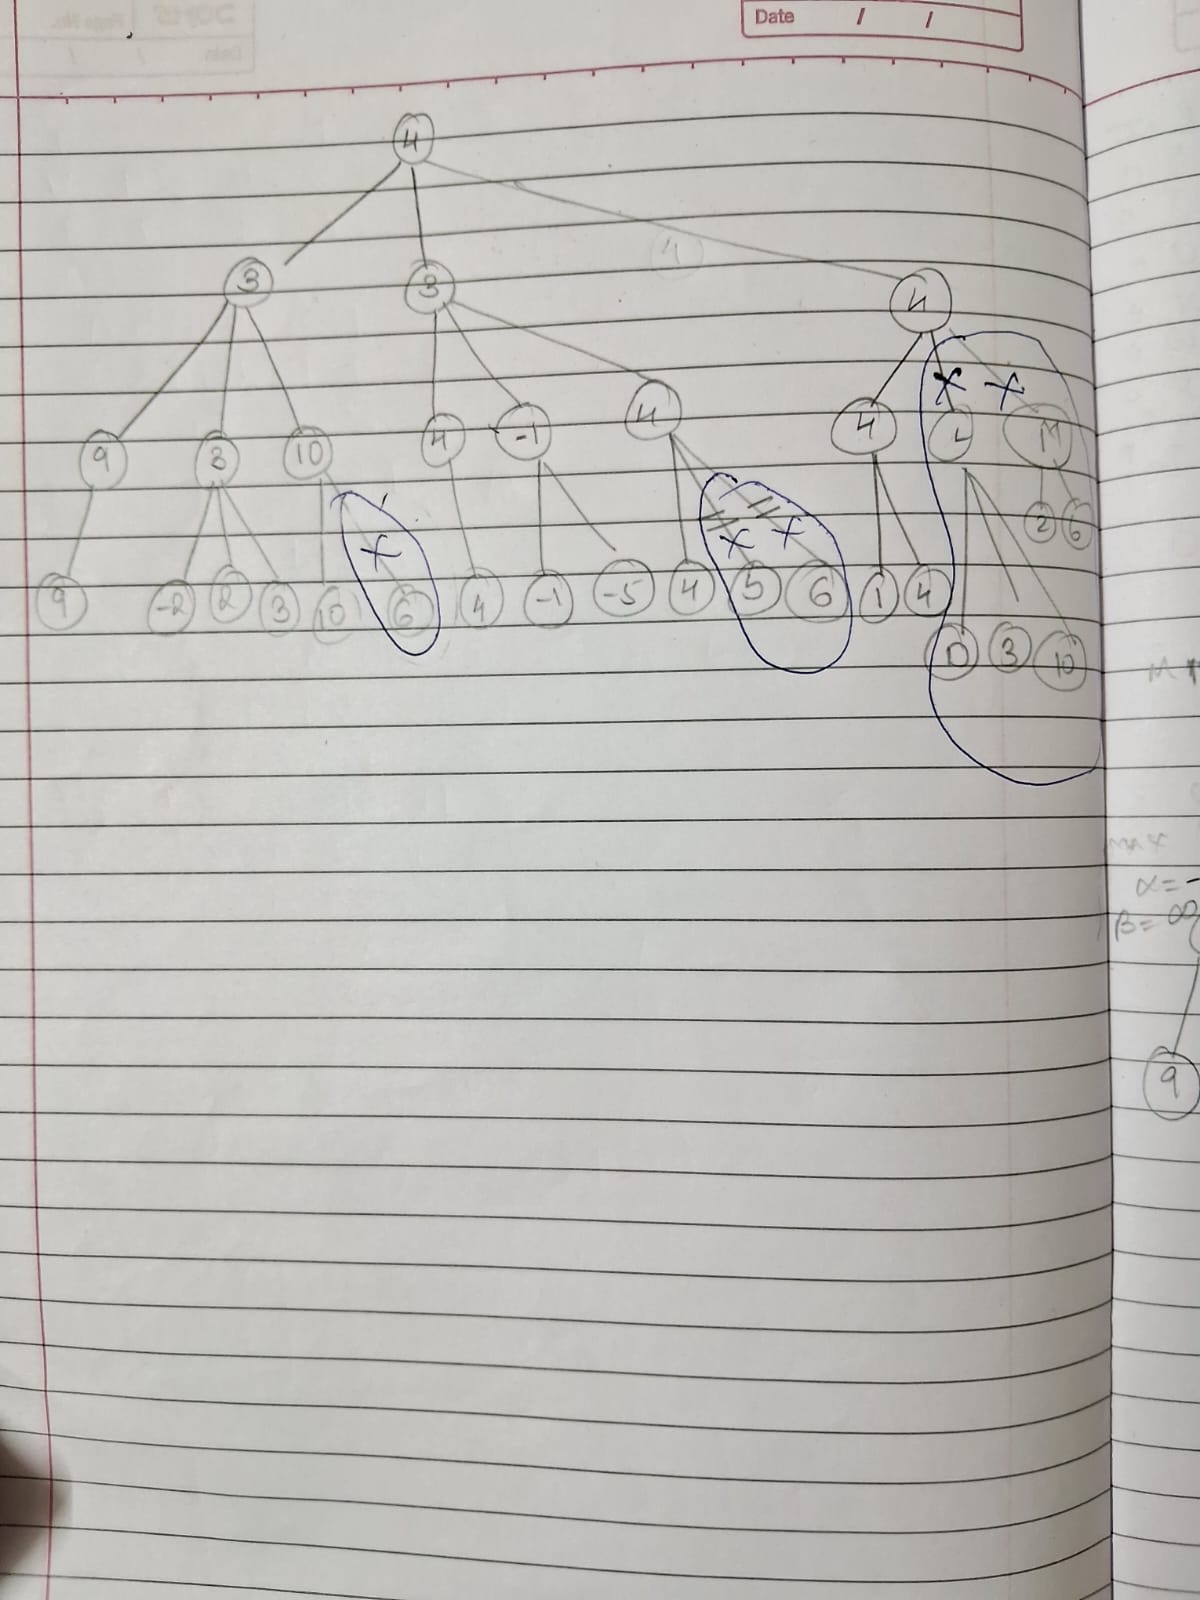 Date / /
4
3 3 4
9 3 10 4 -1 4 4 L M
2 6
9 -2 2 3 10 6 4 -1 -5 4 5 6 1 4
0 3 10
MAX
α = -
β = ∞
9